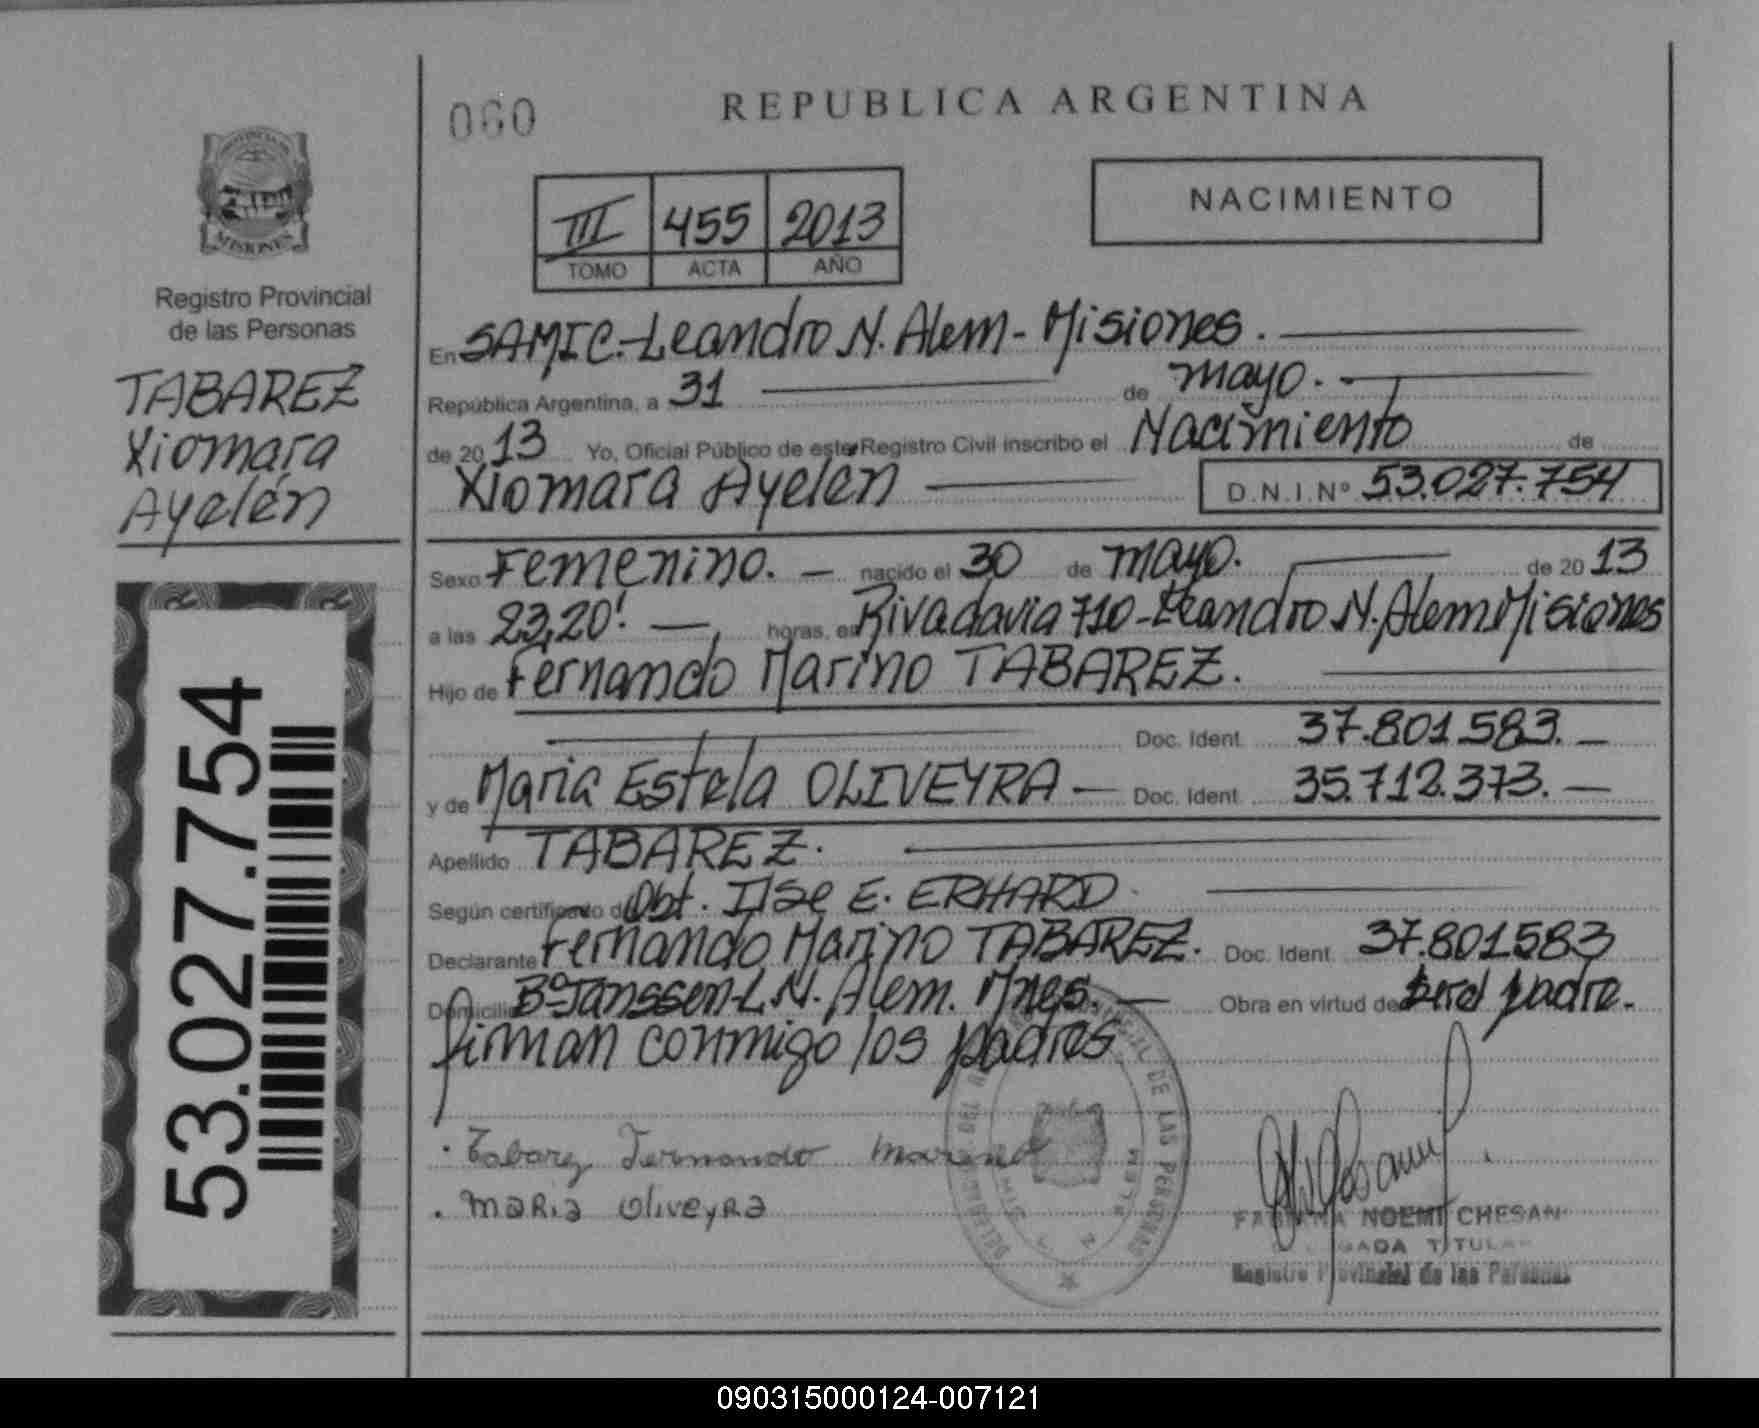 060
REPUBLICA ARGENTINA
PROVINCIA DE
MISIONES
Registro Provincial
de las Personas
TABAREZ
Xiomara
Ayelén
53.027.754
III 455 2013
TOMO ACTA AÑO
NACIMIENTO
En SAMIC.-Leandro N. Alem- Misiones.
República Argentina, a 31 de mayo.
de 2013 Yo, Oficial Público de este Registro Civil inscribo el Nacimiento de
Xiomara Ayelen D.N.I.Nº 53.027.754
Sexo Femenino. nacido el 30 de mayo. de 2013
a las 23,20! horas, en Rivadavia 710-Leandro N. Alem Misiones
Hijo de Fernando Marino TABAREZ.
Doc. Ident. 37.801.583.
y de Maria Estela OLIVEYRA Doc. Ident. 35.712.373.
Apellido TABAREZ.
Según certificado de Obt. Ilse E. ERHARD.
Declarante Fernando Marino TABAREZ. Doc. Ident. 37.801583
Domicilio Bº Janssen-L.N. Alem. Mnes. Obra en virtud de ser el padre.
firman conmigo los padres
Tabarez Fernando Marino
maria oliveyra
DE LAS PERSONAS
NOEMI CHESAN
TITULAR
Registro Provincial de las Personas
090315000124-007121